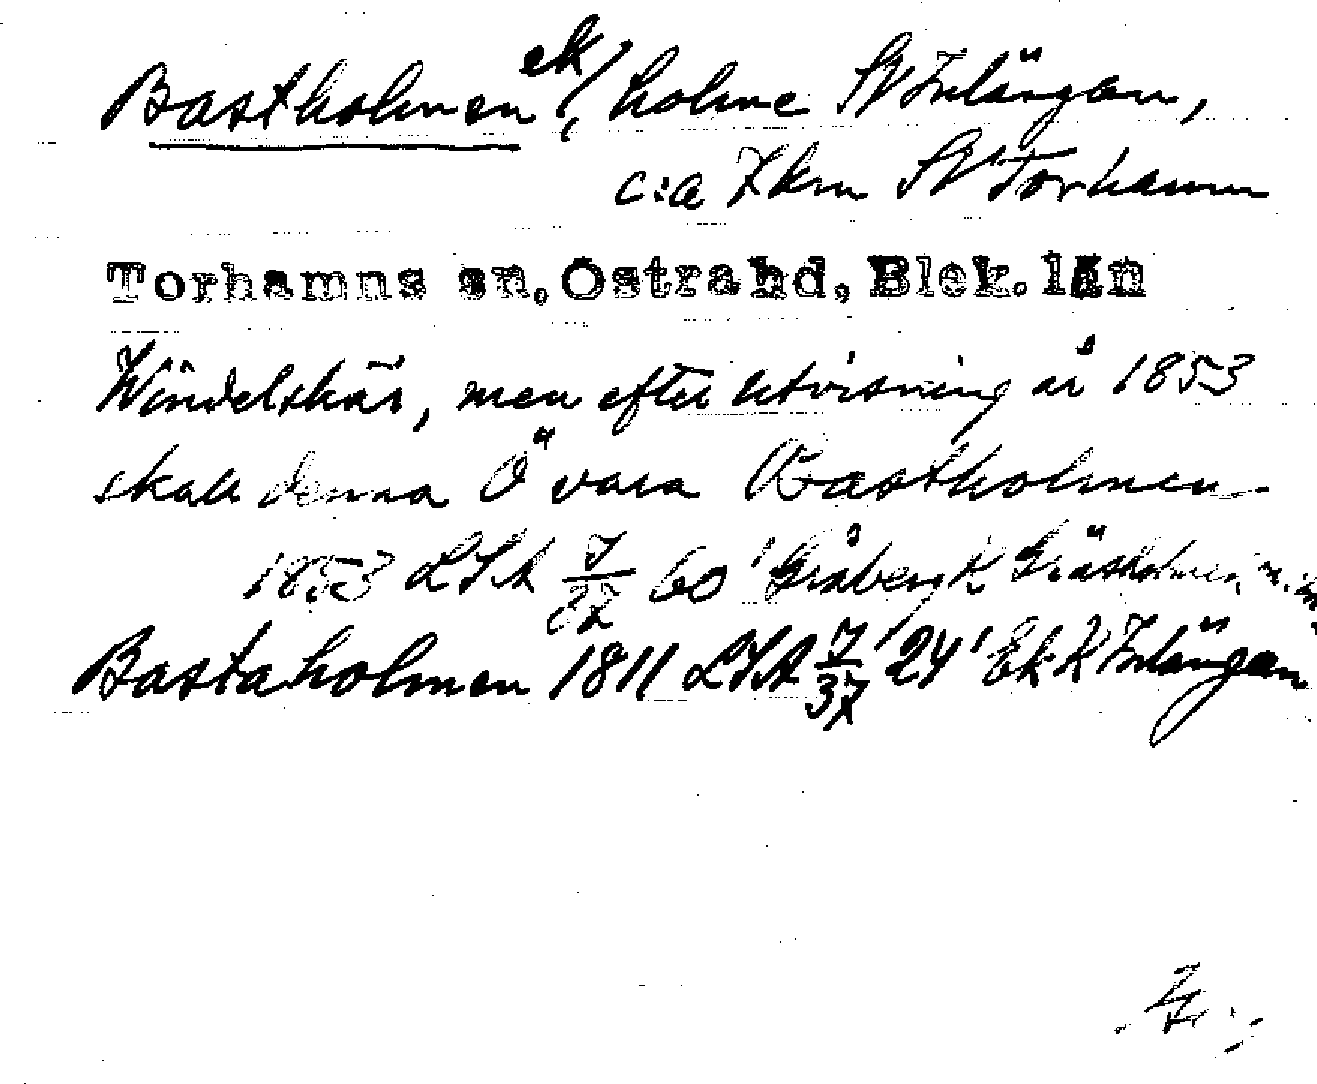 Bastholmen ek/, holme SV Inlängan,
c:a 7 km SV Torhamn
Torhamns sn, Östra hd, Blek. län
Windelskär, men efter utvisning år 1853
skall denna Ö vara Bastholmen
1853 LSA J/32 60 Gråberg K Gräsholmen
Bastaholmen 1811 LSA J/37 '24' Ek K Inlängan